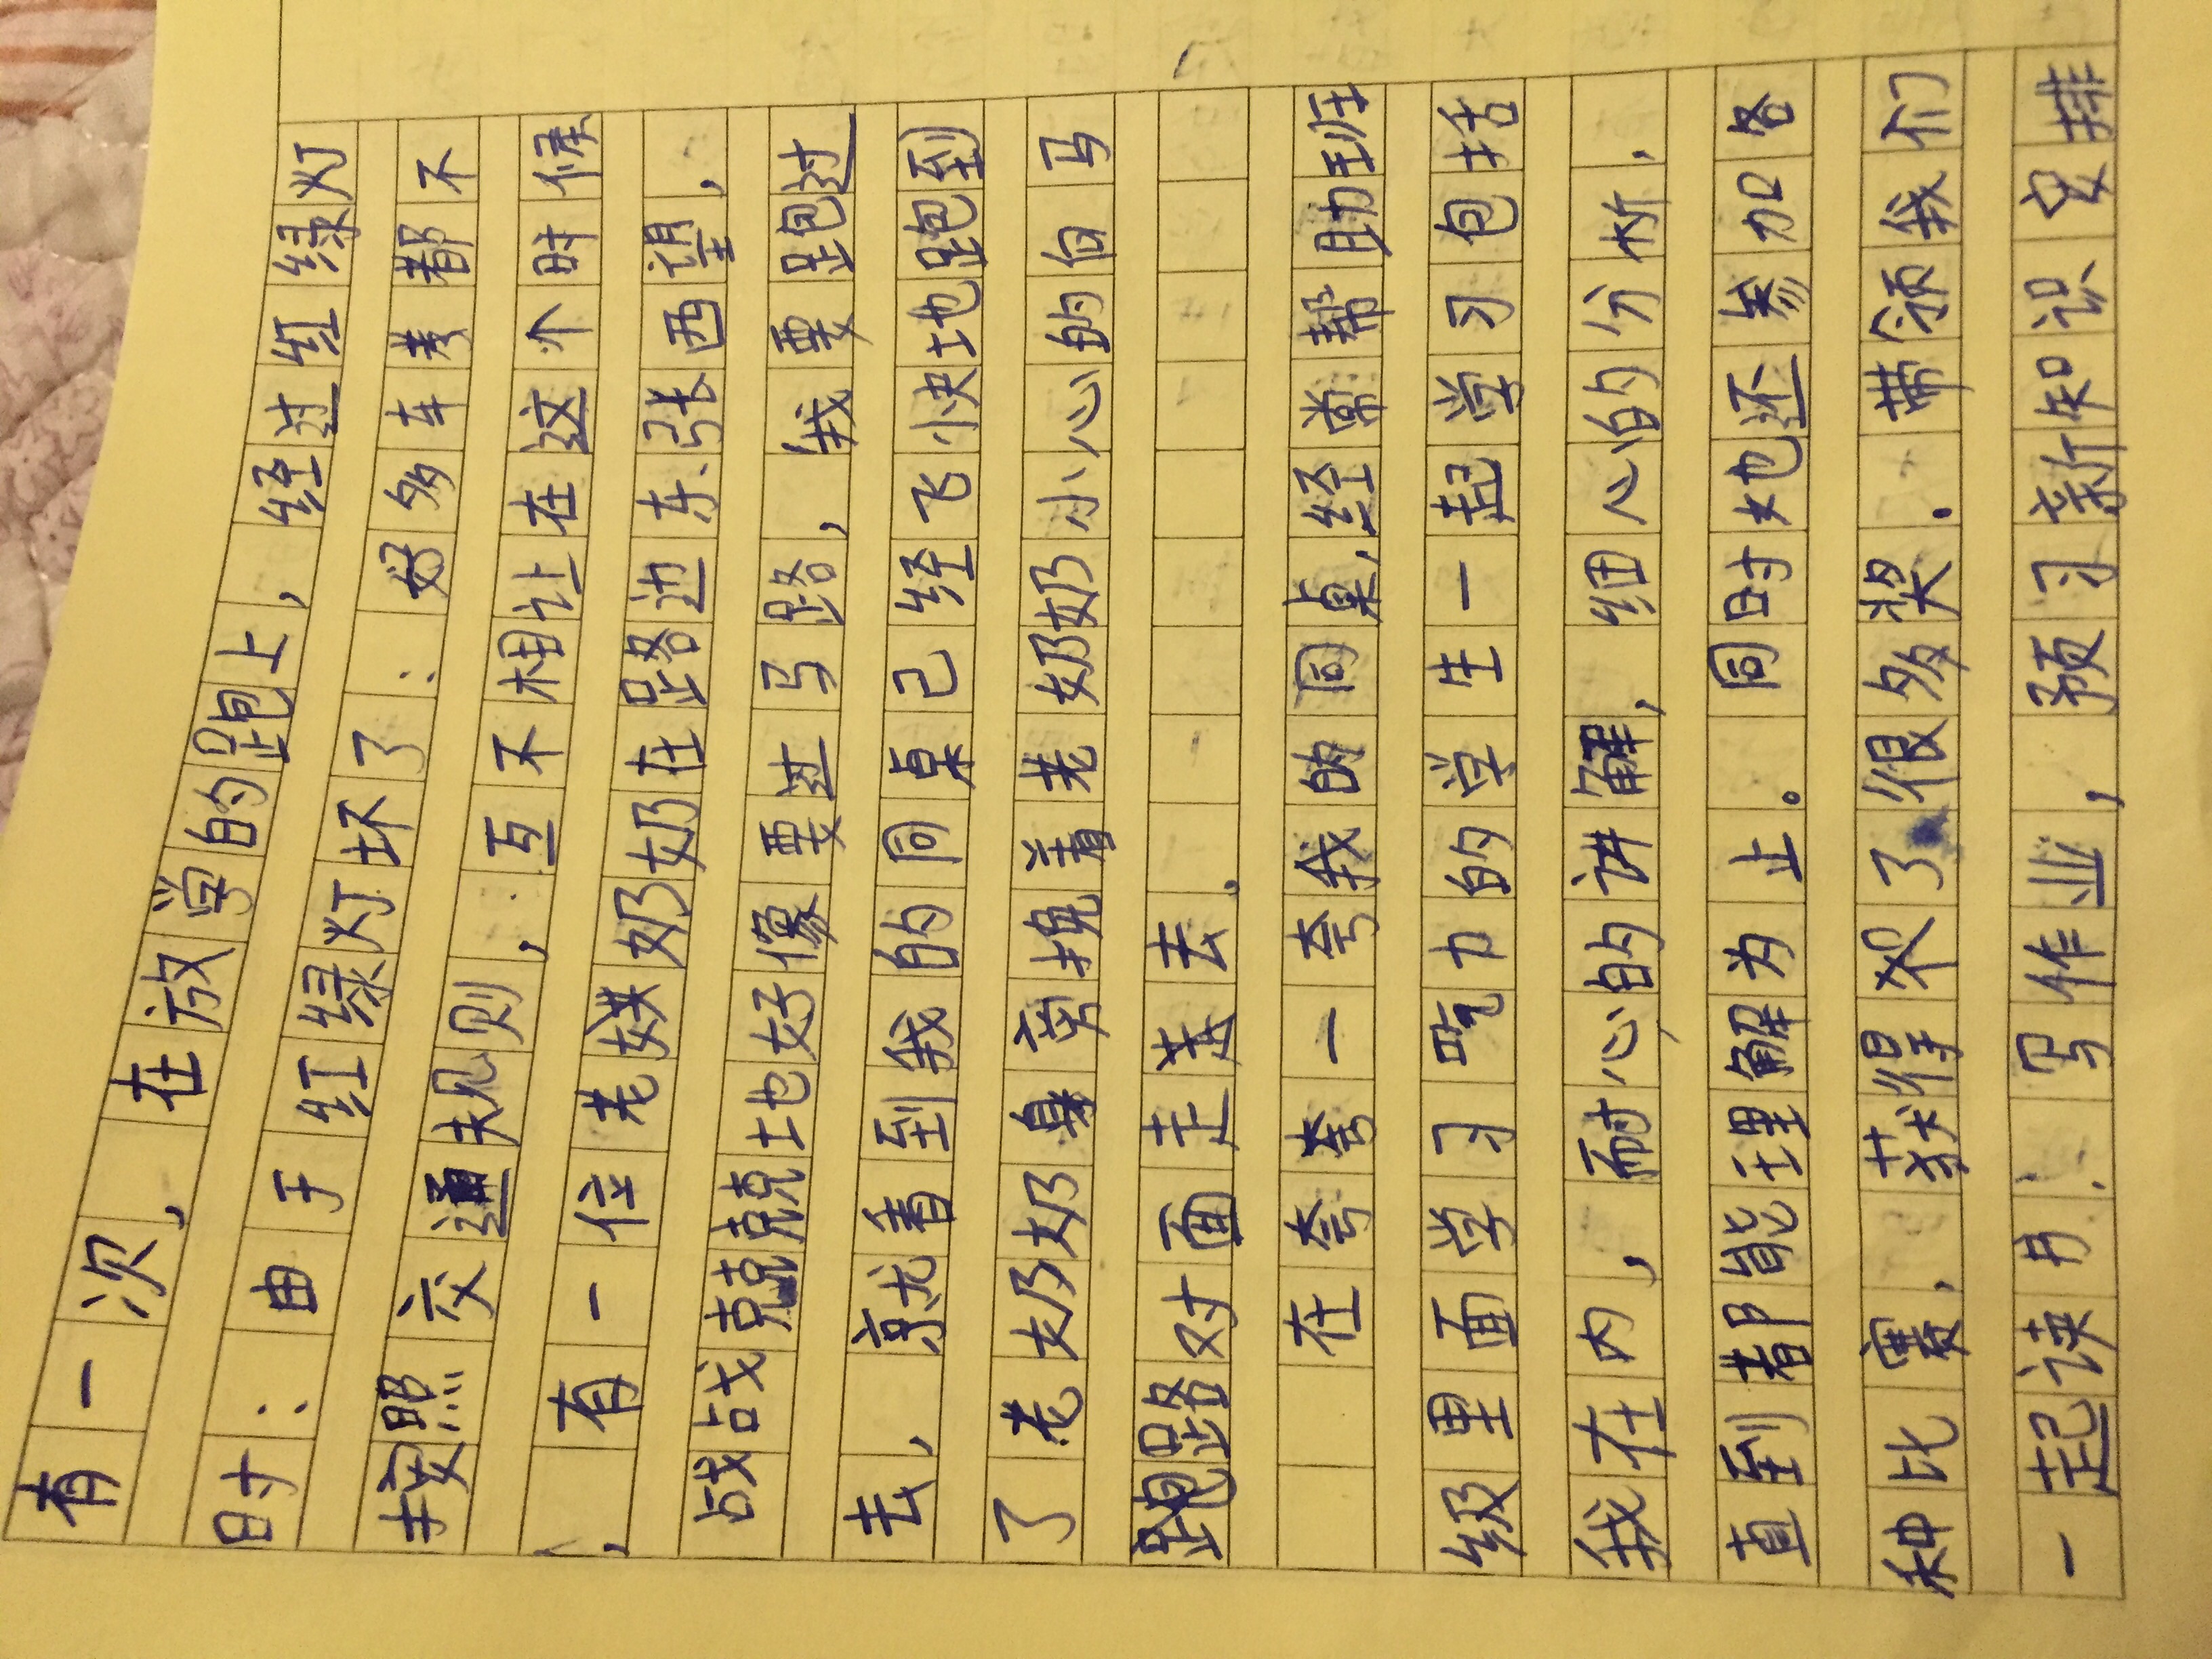 有一次,在放学的跑上,经过红绿灯
时:由于红绿灯坏了:好多车考都不
按照交通规则,互不相让在这个时候
,有一位老奶奶在路边东张西望,
战战克克地好像要过马路,我要跑过
去,京尤看到我的同桌已经飞快地跑到
了老奶奶身旁挽着老奶奶小心的向马
跑路对面走去.
在夸夸一夸我的同桌,经常帮助班
级里面学习吃力的学生一起学习包括
我在内,耐心的讲解,细心的分析,
直到都能理解为止。同时她还参加各
种比赛,获得不了很多奖.带领我们
一起读书:写作业,预习新知识安排